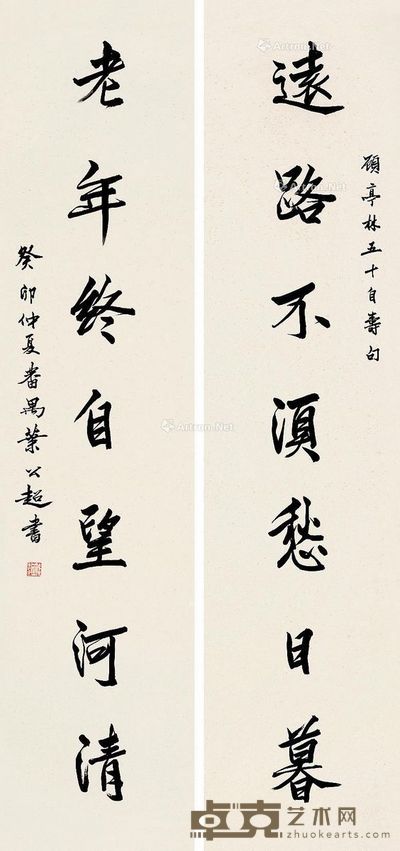 顾亭林五十自壽句
遠路不須愁日暮
老年終自望河清
癸卯仲夏番禺葉公超書
Artron.Net
Artron.Net
Artron.Net
Artron.Net
卓克艺术网
zhuokearts.com